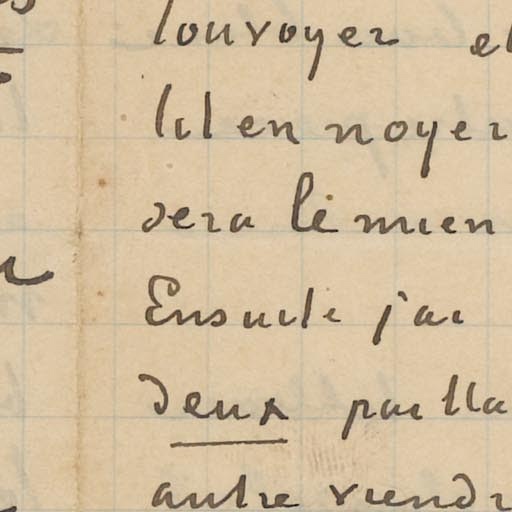 louvoyer et
lit en noyer
sera le mien
Ensuite j'ai
deux pailla
autre viendr